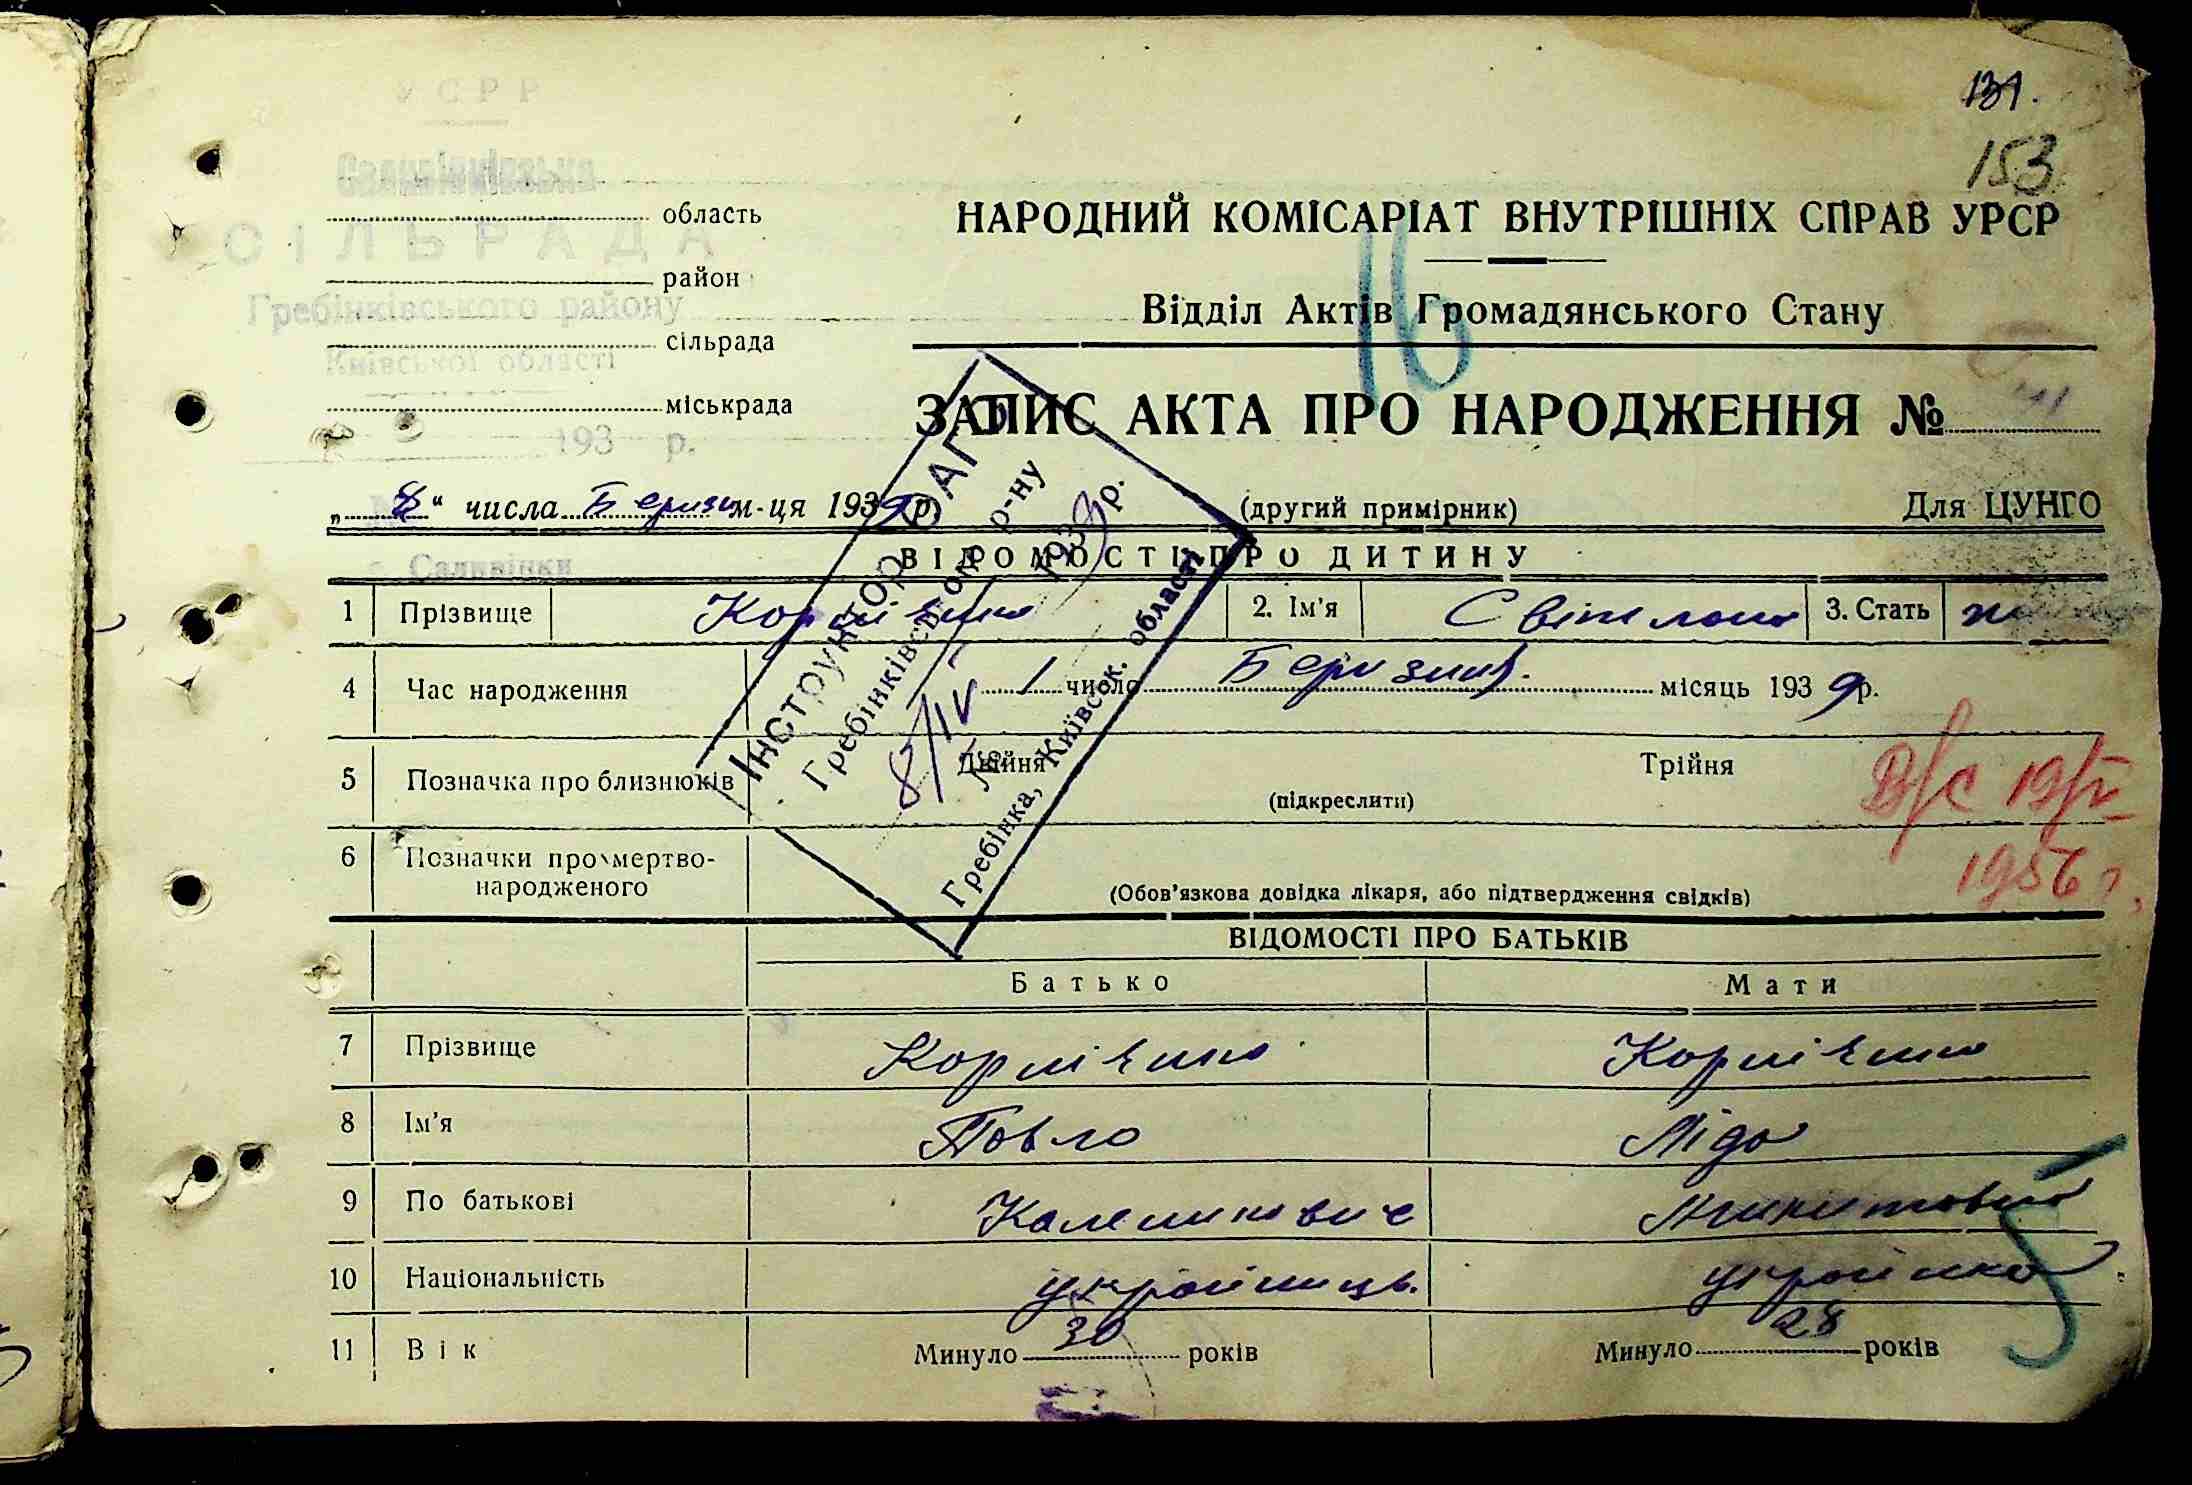 131.
153
УСРР
Саливінківська
СІЛЬРАДА
Гребінківського району
Київської області
193 р.
с. Саливінки
область
район
сільрада
міськрада
НАРОДНИЙ КОМІСАРІАТ ВНУТРІШНІХ СПРАВ УРСР
Відділ Актів Громадянського Стану
16
ЗАПИС АКТА ПРО НАРОДЖЕННЯ №
„ 8 “ числа Березня м-ця 1939 р.
(другий примірник)
Для ЦУНГО
Інструктор ЗАГС
Гребінківського р-ну
8/IV 1939 р.
№
Гребінка, Київськ. області
ВІДОМОСТІ ПРО ДИТИНУ
1 Прізвище Корнієнко 2. Ім’я Світлана 3. Стать ж
4 Час народження 1 число Березня місяць 1939 р.
5 Позначка про близнюків Двійня Трійня
(підкреслити)
В/с 19/V
1956 г.
6 Позначки про мертво-
народженого
(Обов’язкова довідка лікаря, або підтвердження свідків)
ВІДОМОСТІ ПРО БАТЬКІВ
Батько Мати
7 Прізвище Корнієнко Корнієнко
8 Ім’я Павло Ліда
9 По батькові Каленикович Микитовна
10 Національність українець українка
5
11 Вік Минуло 30 років Минуло 28 років